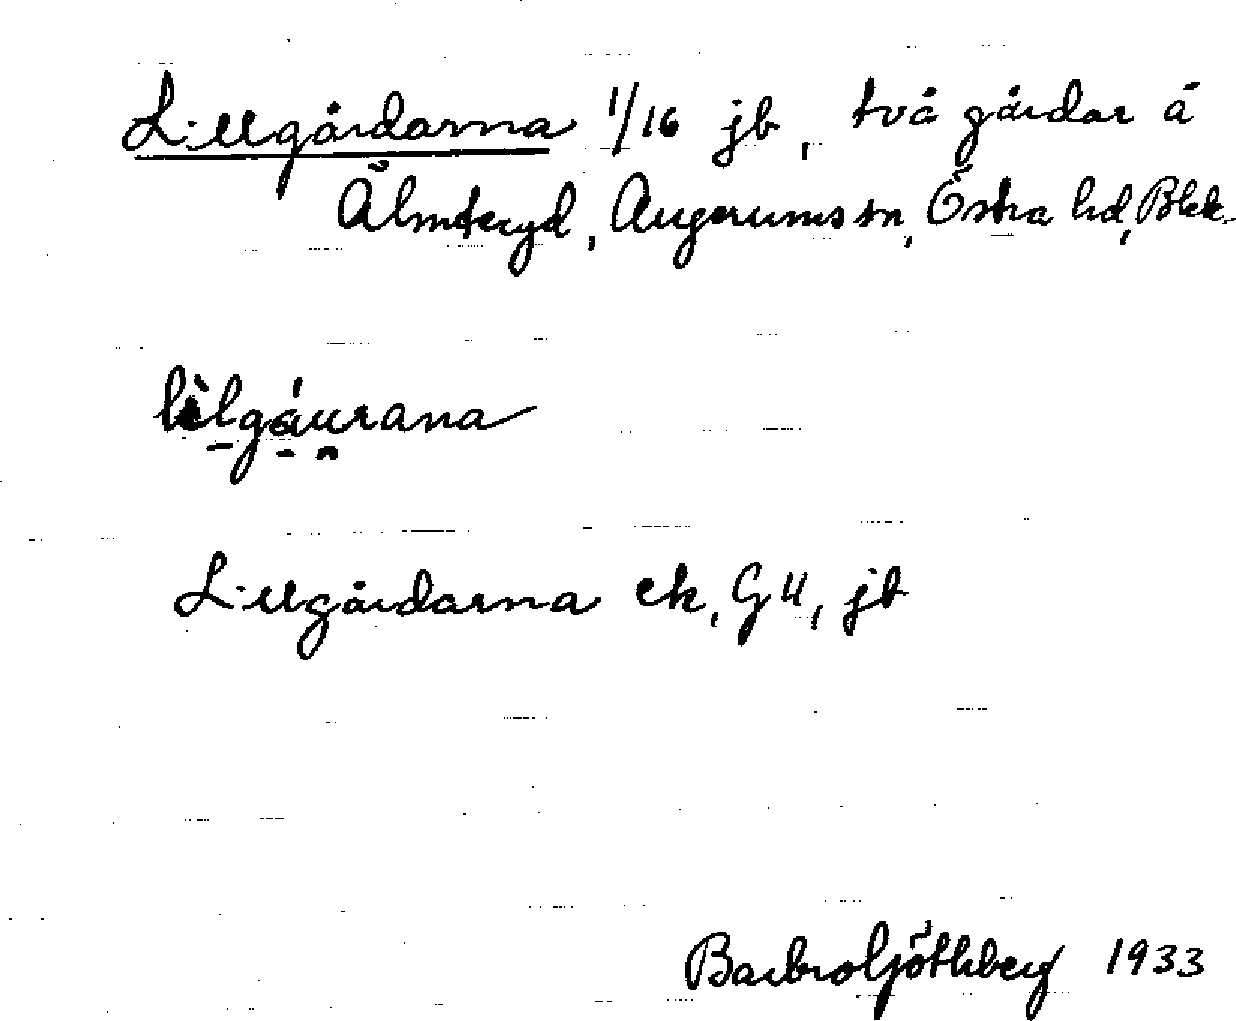 Lillgårdarna 1/16 jb, två gårdar å
Älmteryd, Augerums sn, Östra hd, Blek.
lìlgáurana
Lillgårdarna ek, GU, jb
Barbro Göthberg 1933